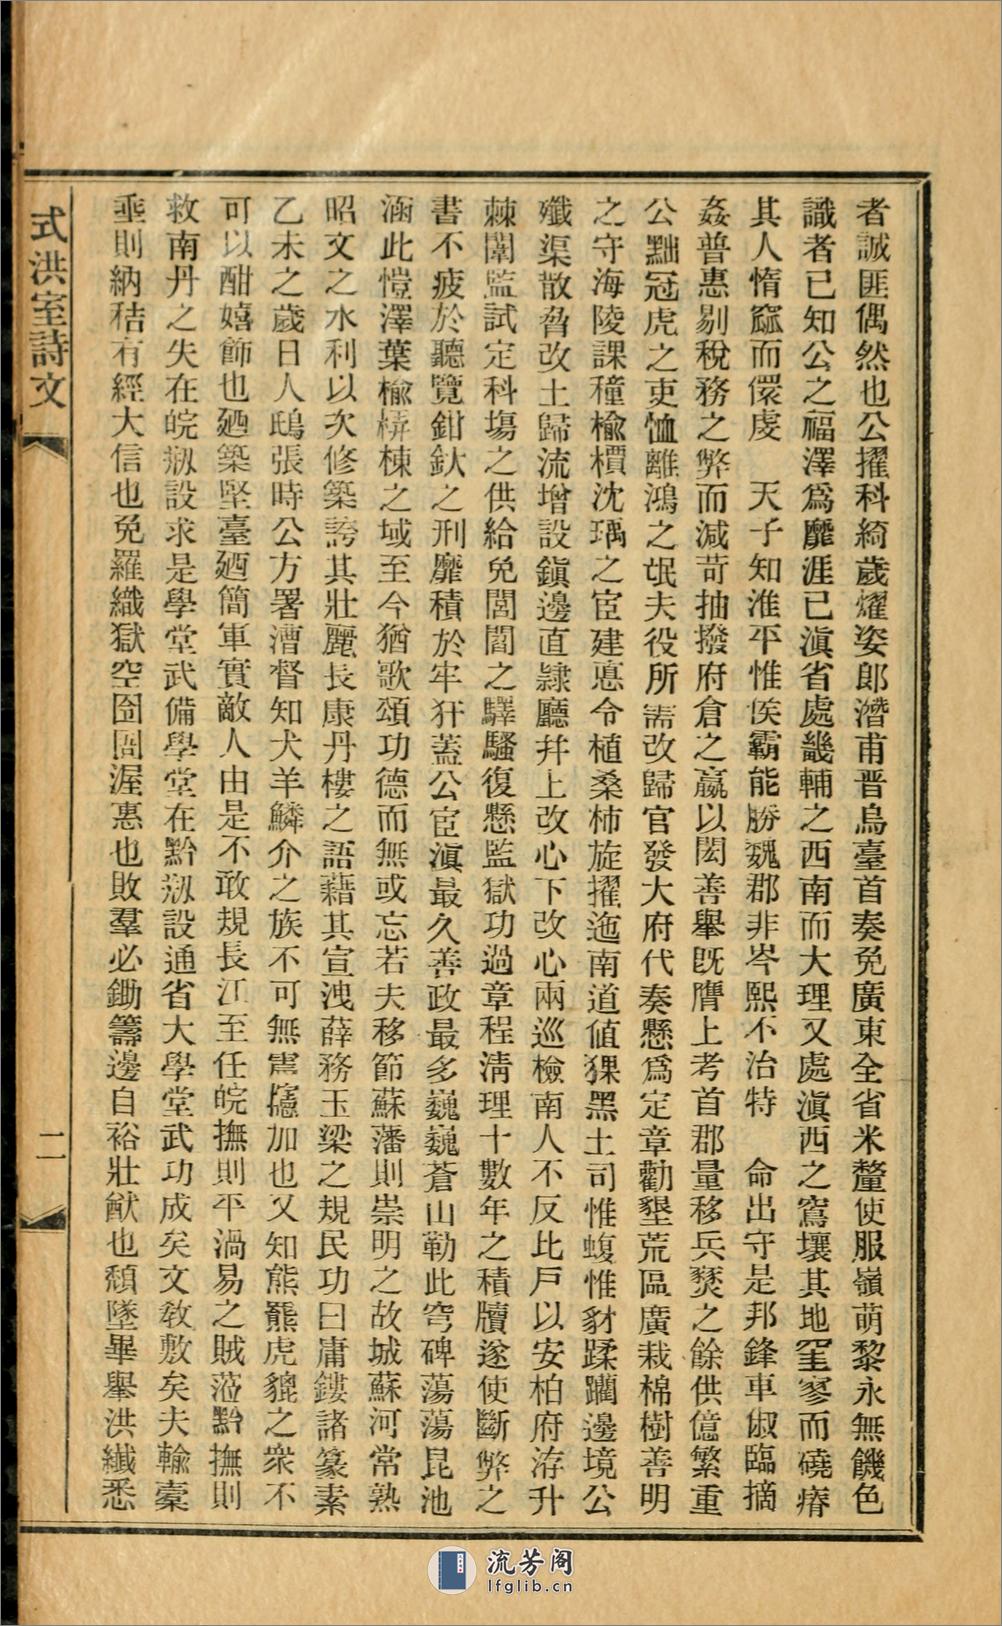 者誠匪偶然也公擢科綺歲燿姿郎潛甫晋烏臺首奏免廣東全省米釐使服嶺萌黎永無饑色
識者已知公之福澤爲靡涯已滇省處畿輔之西南而大理又處滇西之窵壤其地窒寥而磽瘠
其人惰窳而儇虔　天子知淮平惟侯霸能勝魏郡非岑熙不治特　命出守是邦鋒車俶臨摘
姦普惠剔稅務之弊而減苛抽撥府倉之贏以閎善舉旣膺上考首郡量移兵燹之餘供億繁重
公黜冠虎之吏恤離鴻之氓夫役所需改歸官發大府代奏懸爲定章勸墾荒區廣栽棉樹善明
之守海陵課穜楡檟沈瑀之宦建悳令植桑柿旋擢迆南道値猓黑土司惟蝮惟豺蹂躙邊境公
殲渠散脅改土歸流增設鎭邊直隸廳幷上改心下改心兩巡檢南人不反比戶以安柏府洊升
棘闈監試定科塲之供給免閭閻之驛騷復懸監獄功過章程淸理十數年之積牘遂使斷弊之
書不疲於聽覽鉗釱之刑靡積於牢犴蓋公宦滇最久善政最多巍巍蒼山勒此穹碑蕩蕩昆池
涵此愷澤葉楡栟棟之域至今猶歌頌功德而無或忘若夫移節蘇藩則崇明之故城蘇河常熟
昭文之水利以次修築誇其壯麗長康丹樓之語藉其宣洩薛務玉梁之規民功曰庸鏤諸篆素
乙未之歲日人鴟張時公方署漕督知犬羊鱗介之族不可無寚隱加也又知熊羆虎貔之衆不
可以酣嬉飾也廼築堅臺廼簡軍實敵人由是不敢規長江至任皖撫則平渦易之賊涖黔撫則
救南丹之失在皖剏設求是學堂武備學堂在黔剏設通省大學堂武功成矣文敎敷矣夫輸稾
乖則納秸有經大信也免羅織獄空囹圄渥惪也敗羣必鋤籌邊自裕壯猷也頹墜畢舉洪纖悉
式洪室詩文
二
流芳阁
lfglib.cn